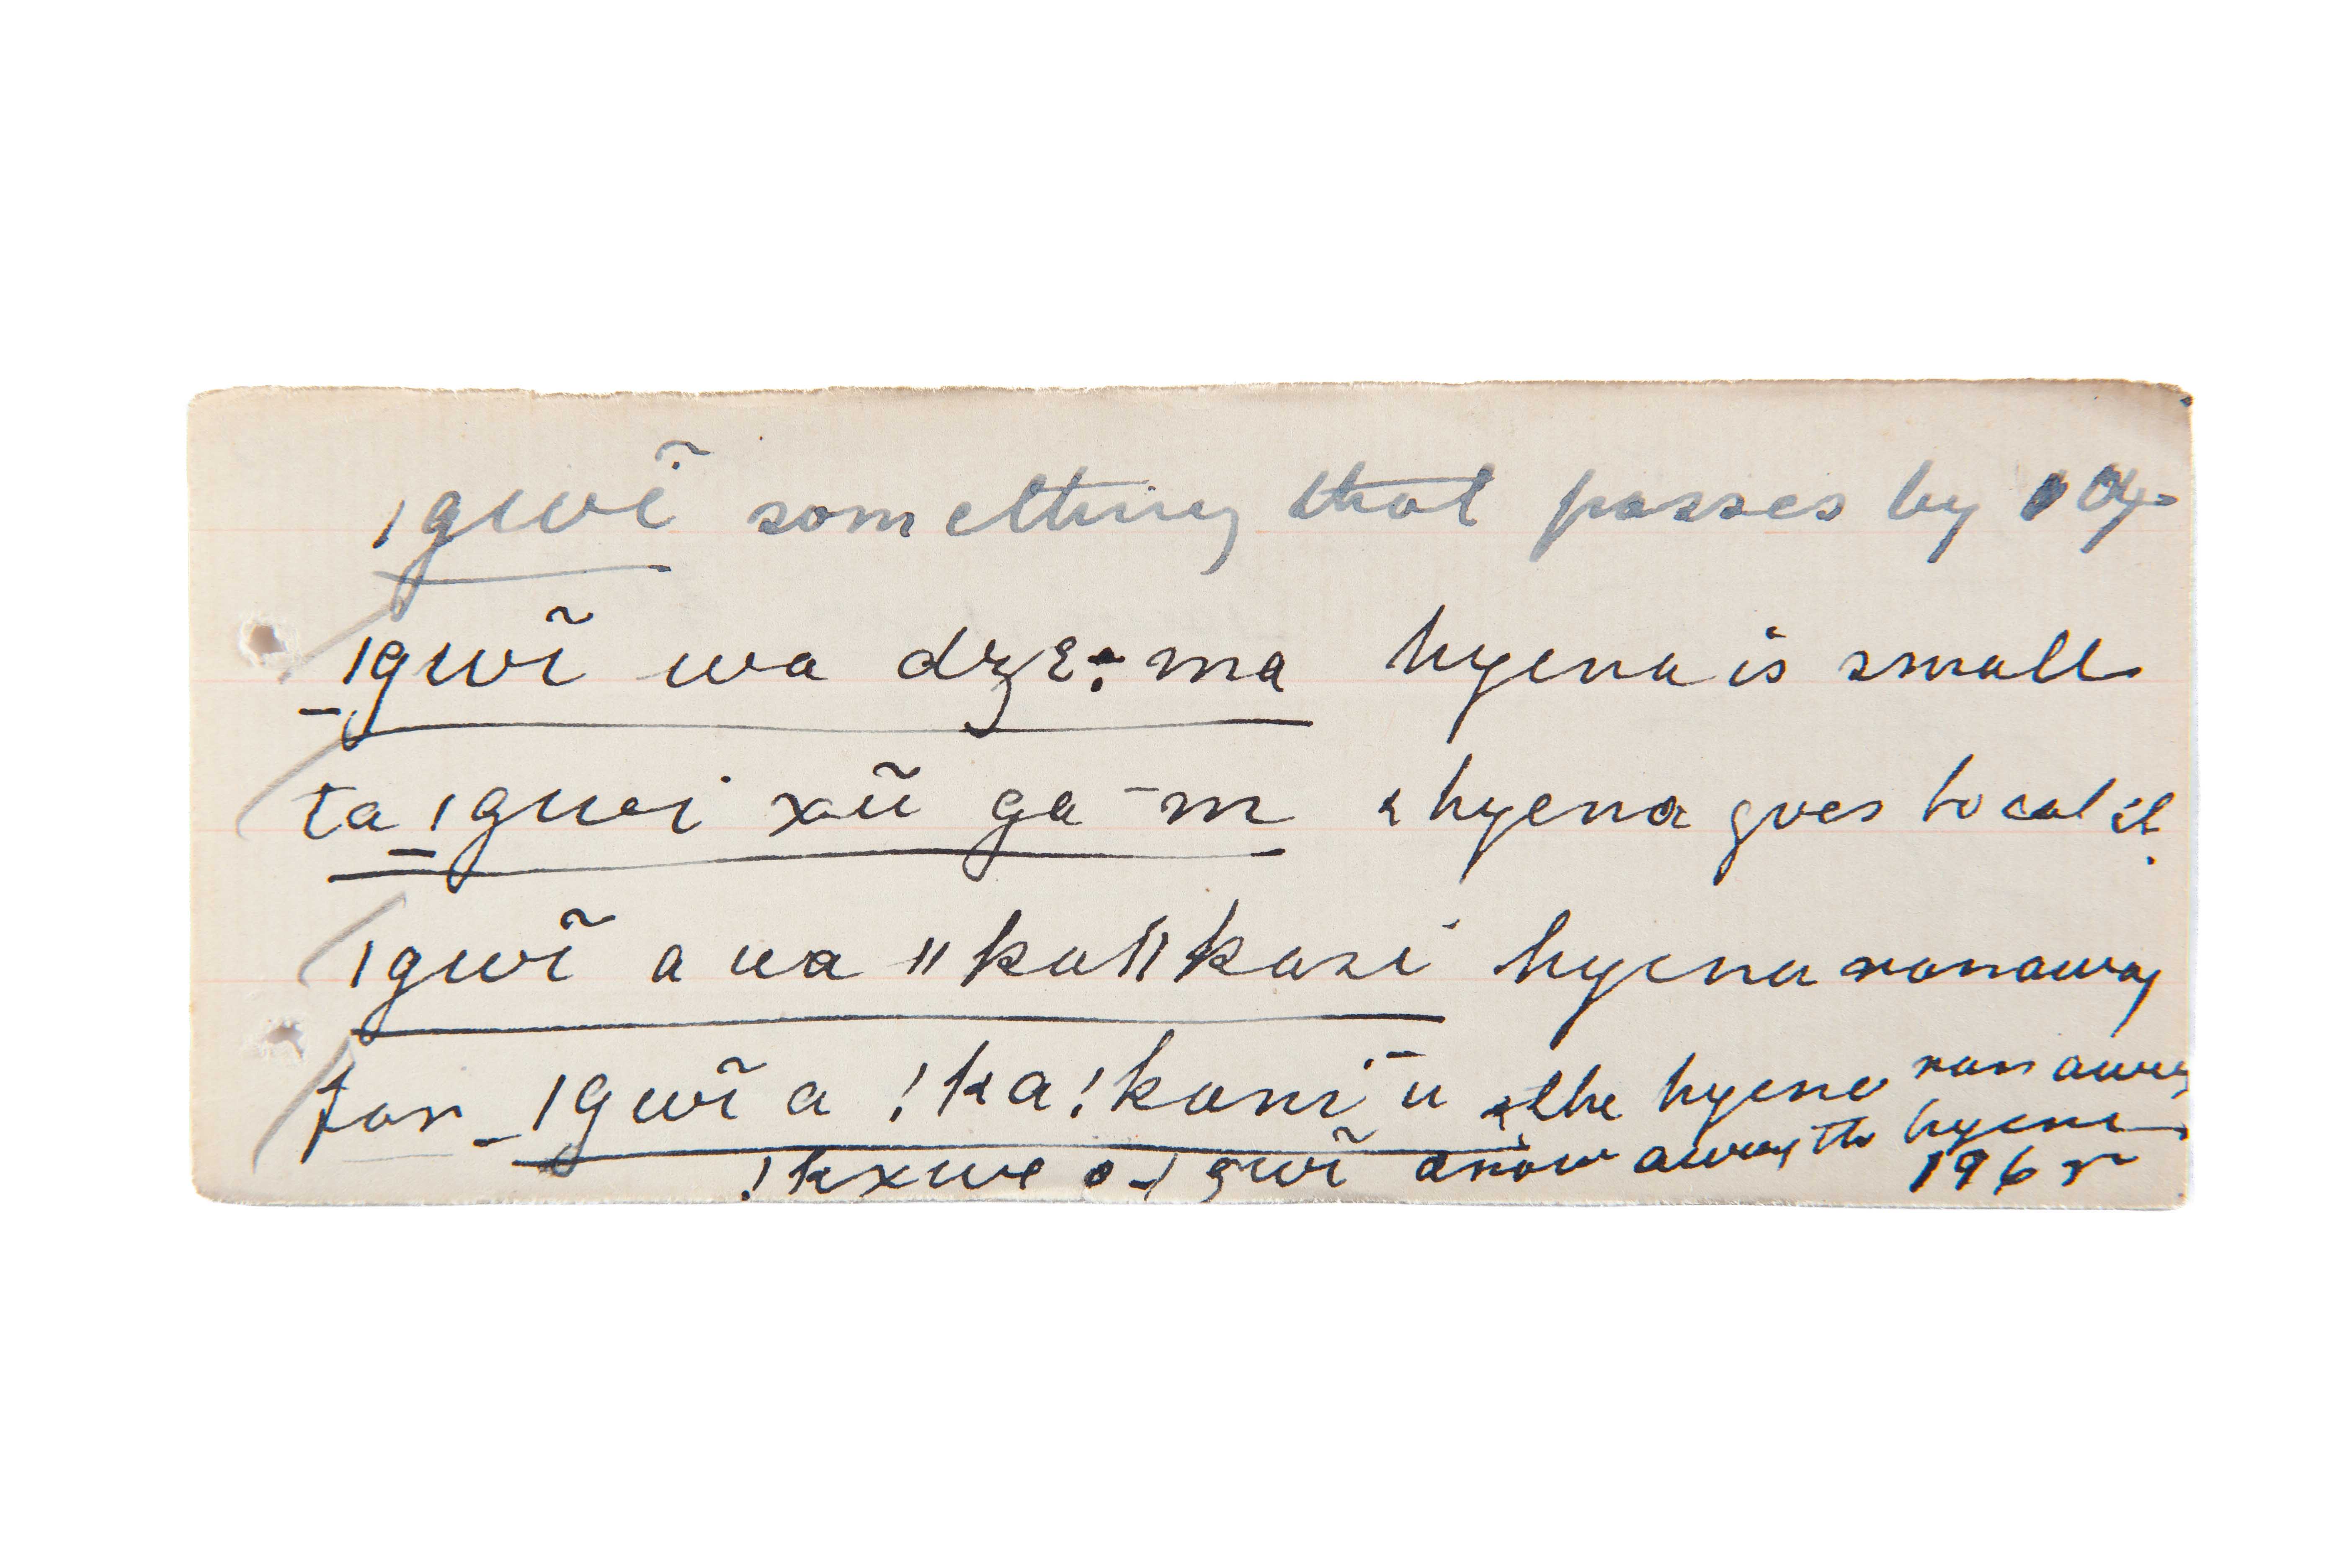 ǀgwĩ something that passes by
ǀgwĩ wa dzɛ:ma hyena is small
ta ǀgwi xũ ga-m hyena goes to eat it.
ǀgwĩ a ua ǁkaǁkasi hyena ran away
ǀgwĩ a !ka!kani u the hyena ran away
!kxwe ǀgwĩ away the hyena